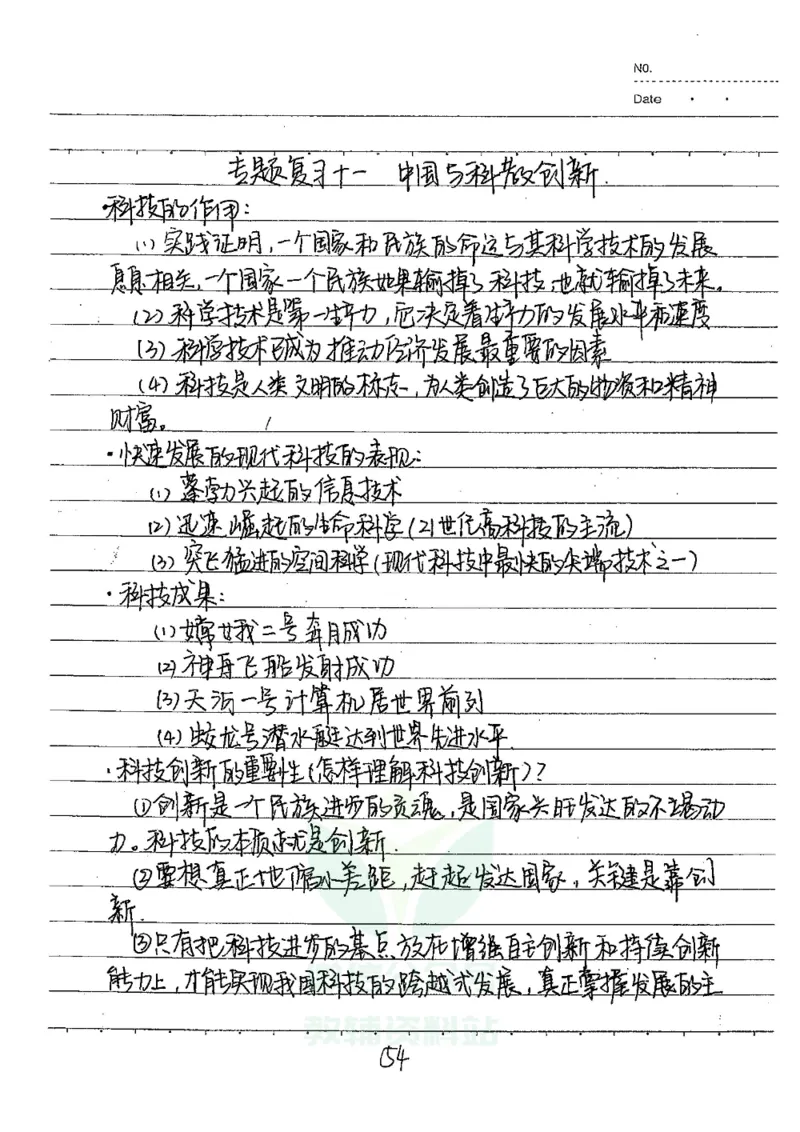 No.
Date
专题复习十一 中国与科教创新.
·科技的作用:
(1)实践证明,一个国家和民族的命运与其科学技术的发展
息息相关,一个国家一个民族如果输掉了科技,也就输掉了未来。
(2)科学技术是第一生产力,它决定着生产力的发展水平和速度
(3)科学技术已成为推动经济发展最重要的因素
(4)科技是人类文明的标志,为人类创造了巨大的物资和精神
财富。
·快速发展的现代科技的表现:
(1)蓬勃兴起的信息技术
(2)迅速崛起的生命科学(21世纪高科技的主流)
(3)突飞猛进的空间科学(现代科技中最快的尖端技术之一)
·科技成果:
(1)嫦娥二号奔月成功
(2)神舟飞船发射成功
(3)天河一号计算机居世界前列
(4)蛟龙号潜水艇达到世界先进水平.
·科技创新的重要性(怎样理解科技创新)?
①创新是一个民族进步的灵魂,是国家兴旺发达的不竭动
力。科技的本质就是创新.
②要想真正地缩小差距,赶超发达国家,关键是靠创
新.
③只有把科技进步的基点放在增强自主创新和持续创新
能力上,才能实现我国科技的跨越式发展,真正掌握发展的主
教辅资料站
154